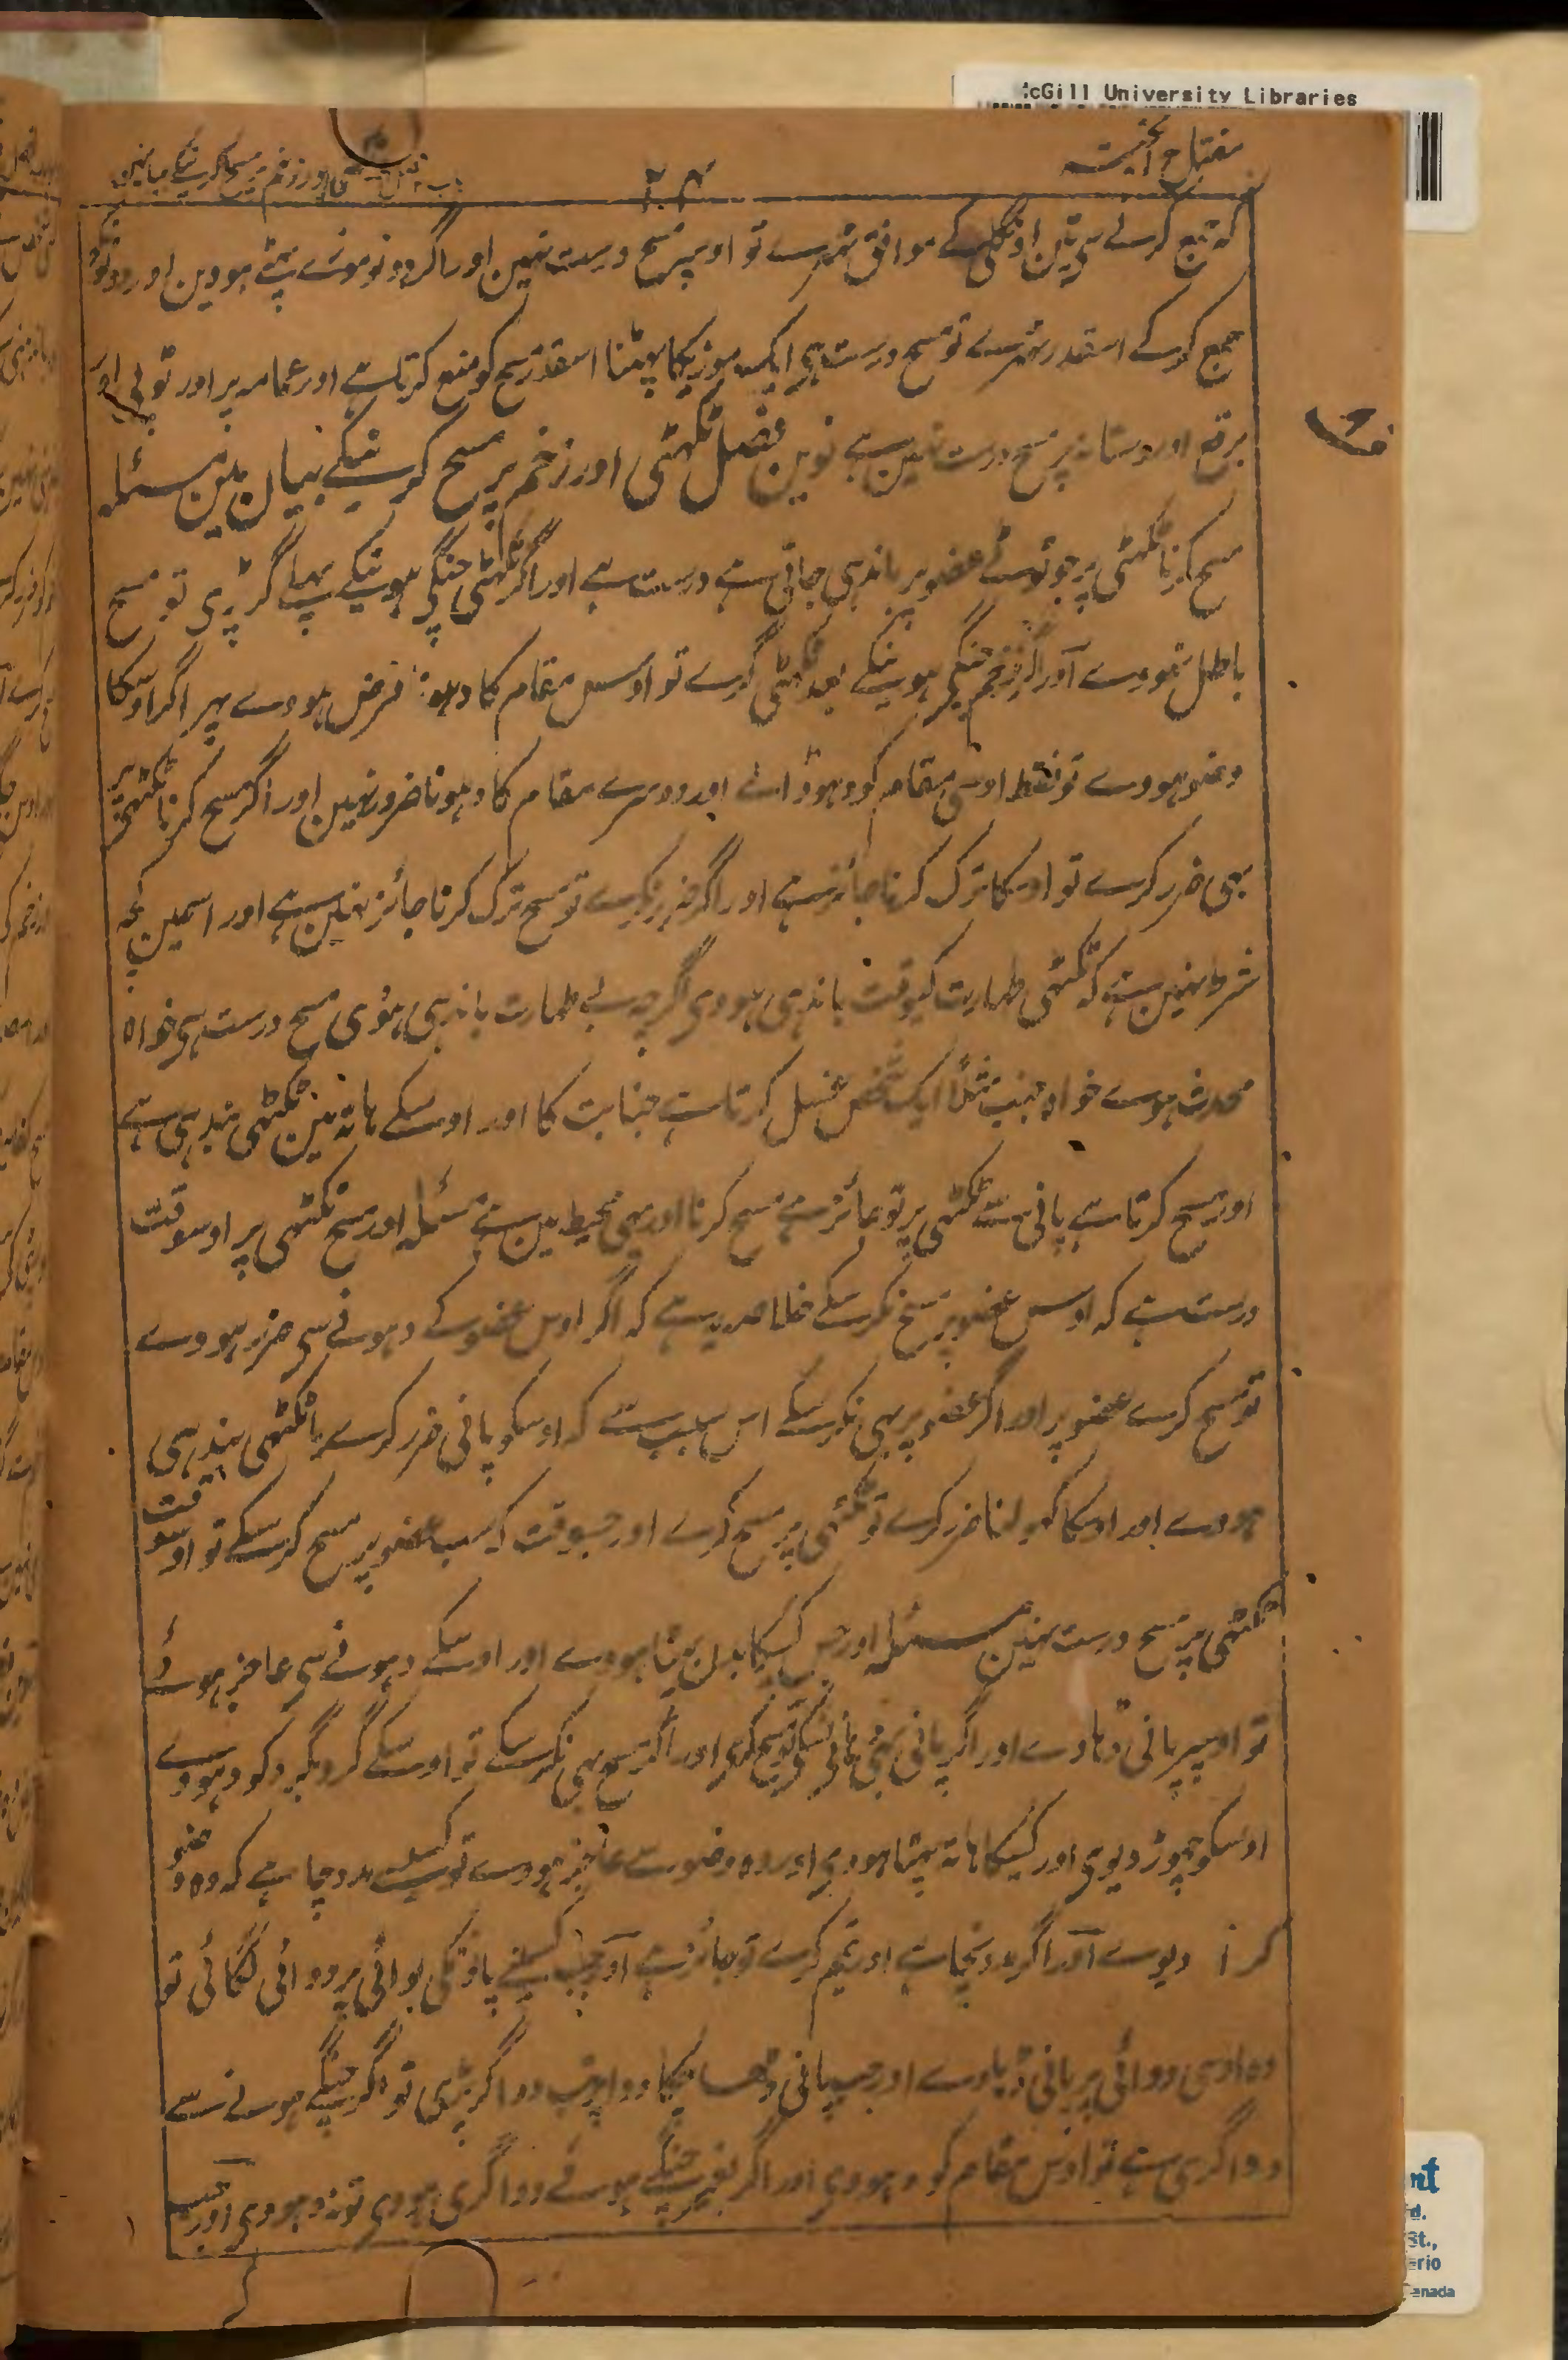 cGill University Libraries
مفتاح الجنت
۲۴
زخم پر مسح کرنیکے بیانمین
کہ جمع کرنے سی تین اونگلی کے موافق ٹھرے تو اوسپر مسح درست نہین اور اگر دونو موزے پھٹے ہووین اور دونونکو
جمع کرکے اسقدر ٹھرے تو مسح درست ہی ایک موزیکا پھٹنا اسقدر مسح کو منع کرتا ہے اور عمامہ پر اور ٹوپی اور
برقع اور دستانہ پر مسح درست نہین ہے نوین فصل ٹکھٹی اور زخم پر مسح کرنیکے بیان مین مسئلہ
مسح کرنا ٹکھٹی پر جو ٹوٹے عضو پر باندہی جاتی ہے درست ہے اور اگر ٹکھٹی چنگی ہونیکے پہلے گر پڑی تو مسح
باطل نہووے اور اگر زخم چنگی ہونیکے بعد ٹکھٹی گرے تو اوس مقام کا دہونا فرض ہووے پہر اگر اوسکا
وضو ہووے تو فقط اوسی مقام کو دہو ڈالے اور دوسرے مقام کا دہونا ضرور نہین اور اگر مسح کرنا ٹکھٹی پر
بھی ضرر کرے تو اوسکا ترک کرنا جائز ہے اور اگر ضرر نکرے تو مسح ترک کرنا جائز نہین ہے اور اسمین کچھ
شرط نہین ہے کہ ٹکھٹی طہارت کیوقت باندہی ہووی اگرچہ بے طہارت باندہی ہوئی مسح درست ہی خواہ
محدث ہوے خواہ جنب مثلاً ایک شخص غسل کرتا ہے جنابت کا اور اوسکے ہاتہ مین ٹکھٹی بندہی ہے
اور مسح کرتا ہے پانی سے ٹکھٹی پر تو جائز ہے مسح کرنا اور یہی محیط مین ہے مسئلہ اور مسح ٹکھٹی پر اوسوقت
درست ہے کہ اوس عضو پر مسح نکرسکے خلاصہ یہ ہے کہ اگر اوس عضو کے دہونے سی ضرر ہووے
تو مسح کرے عضو پر اور اگر عضو پر بھی نکرسکے اس سبب سے کہ اوسکو پانی ضرر کرے یا ٹکھٹی بندہی
ہووے اور اوسکا کھولنا ضرر کرے تو ٹکھٹی پر مسح کرے اور جسوقت کہ سب عضو پر مسح کرسکے تو اوسوقت
ٹکھٹی پر مسح درست نہین مسئلہ اور جس کسیکا بدن پھٹا ہووے اور اوسکے دہونے سی عاجز ہوئے
تو اوسپر پانی بہاوے اور اگر پانی بھی بہا نسکے تو مسح کرے اور اگر مسح بھی نکرسکے تو اوسکے گرد بگرد کو دہووے
اوسکو چھوڑ دیوی اور کسیکا ہاتہ پھٹا ہووی اور وہ وضو سے عاجز ہووے تو کسیسے مدد چاہے کہ وہ وضو
کرا دیوے اور اگر مدد نچاہے اور تیمم کرے تو جائز ہے اور جب کسینے پاؤنکی بوائی پر دوائی لگائی تو
وہ اوسی دوائی پر پانی بہاوے اور جب پانی بہا چکا دوا پر تب دوا گر پڑی تو اگر چنگے ہونے سے
دوا گری ہے تو اوس مقام کو دہووی اور اگر بغیر چنگے ہوئے دوا گری ہووی تو نہ دہووی اور جب
nt
d.
St.,
erio
Canada